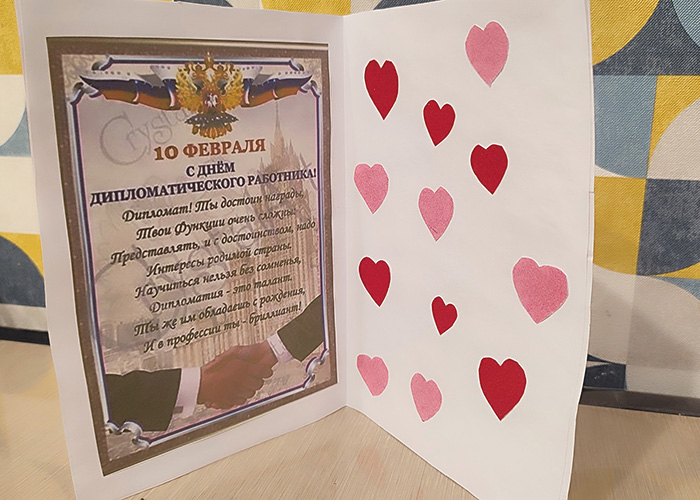 10 ФЕВРАЛЯ
С ДНЁМ
ДИПЛОМАТИЧЕСКОГО РАБОТНИКА!
Дипломат! Ты достоин награды,
Твои Функции очень сложны:
Представлять, и с достоинством, надо
Интересы родимой страны.
Научиться нельзя без сомненья,
Дипломатия - это талант.
Ты же им обладаешь с рождения,
И в профессии ты - бриллиант!